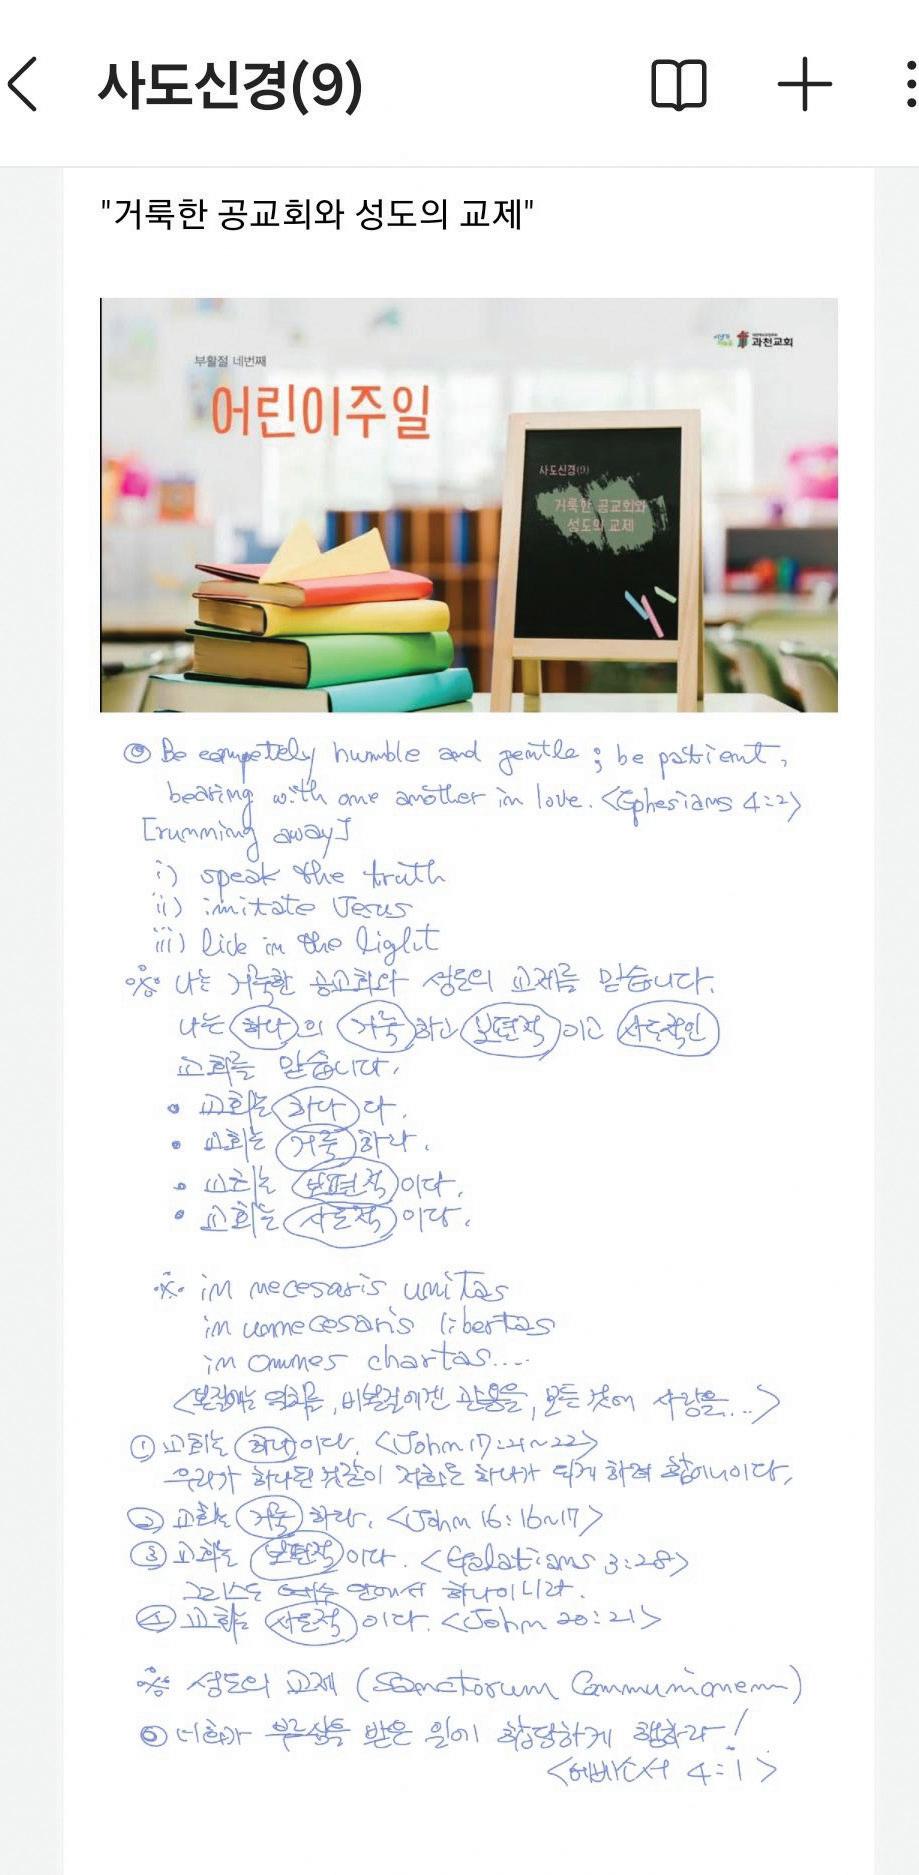 사도신경(9)
"거룩한 공교회와 성도의 교제"
과천교회
부활절 네번째
어린이주일
사도신경(9)
거룩한 공교회와
성도의 교제
◎ Be competely humble and gentle ; be patient,
bearing with one another in love. <Ephesians 4:2>
[running away]
i) speak the truth
ii) imitate Jesus
iii) live in the light
※ 나는 거룩한 공교회와 성도의 교제를 믿습니다.
나는 하나의 거룩하고 보편적이고 사도적인
교회를 믿습니다.
• 교회는 하나다.
• 교회는 거룩하다.
• 교회는 보편적이다.
• 교회는 사도적이다.
※ in necesaris unitas
in unnecesaris libertas
in omnes chartas....
<본질에는 일치를, 비본질에겐 관용을, 모든 것에 사랑을...>
① 교회는 하나이다. <John 17:21~22>
우리가 하나된 것같이 저희도 하나가 되게 하려 함이니이다.
② 교회는 거룩하다. <John 16:16~17>
③ 교회는 보편적이다. <Galatians 3:28>
그리스도 예수 안에서 하나이니라.
④ 교회는 사도적이다. <John 20:21>
※ 성도의 교제 (Sanctorum Communionem)
◎ 너희가 부르심을 받은 일에 합당하게 행하라!
<에베소서 4:1>